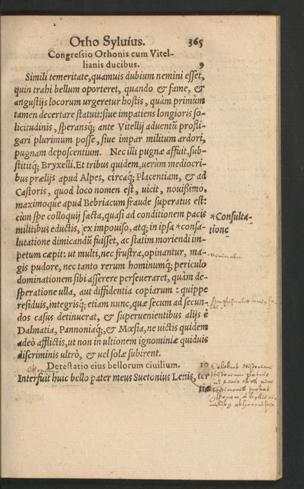 Otho Syluius. 365
Congressio Othonis cum Vitel-
lianis ducibus. 9
Simili temeritate, quamuis dubium nemini esset,
quin trahi bellum oporteret, quando & fame, &
angustijs locorum urgeretur hostis, quàm primùm
tamen decertare statuit: siue impatiens longioris so-
licitudinis, speransq́; ante Vitellij aduentũ profli-
gari plurimùm posse, siue impar militum ardori,
pugnam deposcentium. Nec illi pugnæ affuit, sub-
stititq́; Bryxelli. Et tribus quidem, uerùm mediocri-
bus prælijs apud Alpes, circaq́; Placentiam, & ad
Castoris, quod loco nomen est, uicit, nouissimo,
maximoque apud Bebriacum fraude superatus est:
cùm spe colloquij facta, quasi ad conditionem pacis
militibus eductis, ex improuiso, atq; in ipsa *consa-
lutatione dimicandũ fuisset, ac statim moriendi im-
petum cœpit: ut multi, nec frustra, opinantur, ma-
gis pudore, nec tanto rerum hominumq́; periculo
dominationem sibi asserere perseueraret, quàm de-
speratione ulla, aut diffidentia copiarum: quippe
residuis, integrisq́; etiam nunc, quæ secum ad secun-
dos casus detinuerat, & superuenientibus alijs è
Dalmatia, Pannoniaq́;, & Mœsia, ne uictis quidem
adeò afflictis, ut non in ultionem ignominiæ quiduis
discriminis ultrò, & uel solæ subirent.
Detestatio eius bellorum ciuilium. 10
Interfuit huic bello pater meus Suetonius Lenis, ter
*Consulta-
tione